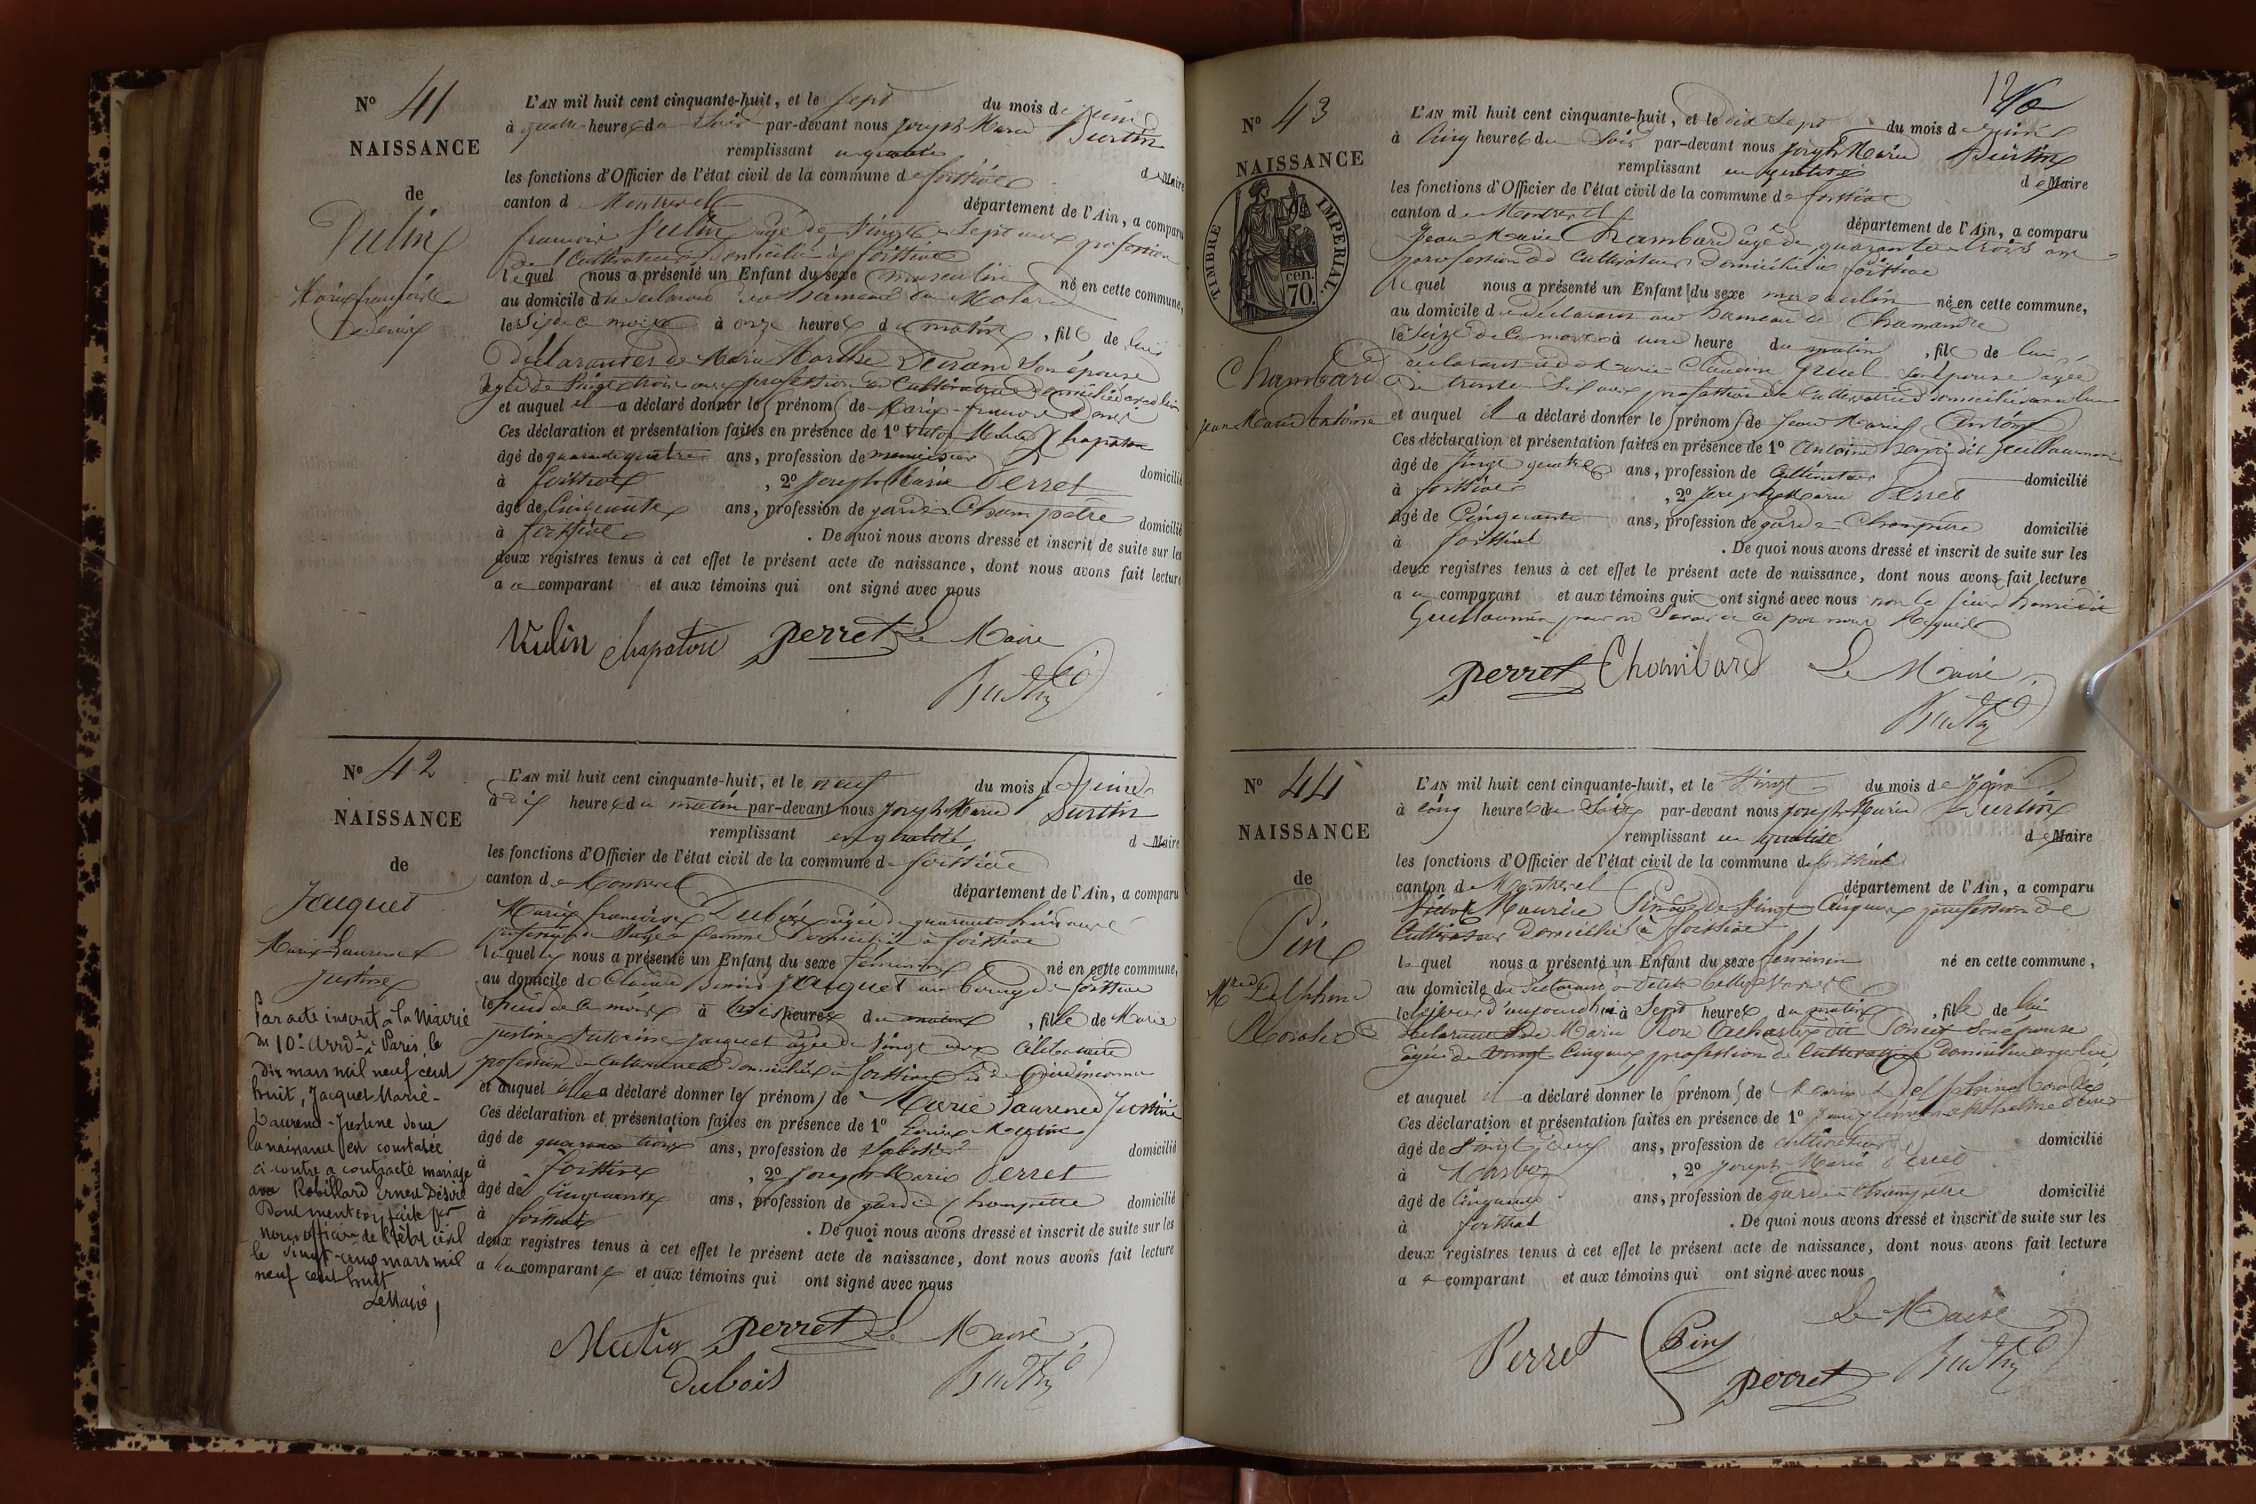 N° 41
NAISSANCE
de
Vulin
Marie françois
Denis
L'AN mil huit cent cinquante-huit, et le sept du mois de juin
à quatre heures du soir par-devant nous Joseph Marie Burtin
remplissant en qualité de Maire
les fonctions d'Officier de l'état civil de la commune de foissiat
canton de Montrevel département de l'Ain, a comparu
françois Vulin âgé de vingt sept ans profession
de Cultivateur domicilié à foissiat
lequel nous a présenté un Enfant du sexe masculin né en cette commune,
au domicile du déclarant au hameau du
le six de ce mois à onze heures du matin, fils de lui
déclarant et de Marie Marthe son épouse
âgée de vingt trois ans profession de Cultivatrice domiciliée avec lui
et auquel il a déclaré donner les prénoms de Marie françois Denis
Ces déclaration et présentation faites en présence de 1° Victor Marie Chapaton
âgé de quarante quatre ans, profession de menuisier domicilié
à foissiat, 2° Joseph Marie Perret
âgé de Cinquante ans, profession de garde Champêtre domicilié
à foissiat. De quoi nous avons dressé et inscrit de suite sur les
deux registres tenus à cet effet le présent acte de naissance, dont nous avons fait lecture
a ce comparant et aux témoins qui ont signé avec nous
Vulin chapaton perret Le Maire
Burtin
N° 42
NAISSANCE
de
Jacquet
Marie Laurence
Justine
Par acte inscrit à la Mairie
du 10e Arrdt à Paris le
dix mars mil neuf cent
huit, Jacquet Marie-
Laurence-Justine dont
la naissance est constatée
ci contre a contracté mariage
avec Robillard Ernest Désiré
Dont mention faite par
nous officier de l'état civil
le vingt-cinq mars mil
neuf cent huit
Le Maire
L'AN mil huit cent cinquante-huit, et le neuf du mois de juin
à dix heures du matin par-devant nous Joseph Marie Burtin
remplissant en qualité de Maire
les fonctions d'Officier de l'état civil de la commune de foissiat
canton de Montrevel département de l'Ain, a comparu
Marie françoise Dubois âgée de quarante ans
profession de Sage femme domiciliée à foissiat
laquelle nous a présenté un Enfant du sexe féminin né en cette commune,
au domicile de Claude Jacquet au bourg de foissiat
le huit de ce mois à trois heures du matin, fille de Marie
justine Jacquet âgée de vingt ans Célibataire
profession de cultivatrice domiciliée à foissiat et de père inconnu
et auquel elle a déclaré donner les prénoms de Marie Laurence Justine
Ces déclaration et présentation faites en présence de 1°
âgé de quarante trois ans, profession de Sabotier domicilié
à foissiat, 2° Joseph Marie Perret
âgé de Cinquante ans, profession de garde Champêtre domicilié
à foissiat. De quoi nous avons dressé et inscrit de suite sur les
deux registres tenus à cet effet le présent acte de naissance, dont nous avons fait lecture
a la comparante et aux témoins qui ont signé avec nous
perret Le Maire
dubois Burtin
N° 43
NAISSANCE
TIMBRE IMPÉRIAL
70. cen.
Chambard
Jean Marie Antoine
L'AN mil huit cent cinquante-huit, et le dix sept du mois de juin
à Cinq heures du Soir par-devant nous Joseph Marie Burtin
remplissant en qualité de Maire
les fonctions d'Officier de l'état civil de la commune de foissiat
canton de Montrevel département de l'Ain, a comparu
Jean Marie Chambard âgé de quarante trois ans
profession de Cultivateur domicilié à foissiat
lequel nous a présenté un Enfant du sexe masculin né en cette commune,
au domicile du déclarant au hameau de
le seize de ce mois à une heure du matin, fils de lui
déclarant et de Marie Claudine son épouse âgée
de trente six ans profession de Cultivatrice domiciliée avec lui
et auquel il a déclaré donner les prénoms de Jean Marie Antoine
Ces déclaration et présentation faites en présence de 1° Antoine dit Guillaumin
âgé de vingt quatre ans, profession de Cultivateur domicilié
à foissiat, 2° Joseph Marie Perret
âgé de Cinquante ans, profession de garde Champêtre domicilié
à foissiat. De quoi nous avons dressé et inscrit de suite sur les
deux registres tenus à cet effet le présent acte de naissance, dont nous avons fait lecture
a ce comparant et aux témoins qui ont signé avec nous non le sieur dit
Guillaumin pour ne Savoir ce par nous Requis
perret Chambard Le Maire
Burtin
N° 44
NAISSANCE
de
Pin
Delphine
L'AN mil huit cent cinquante-huit, et le Vingt du mois de Juin
à cinq heures du Soir par-devant nous Joseph Marie Burtin
remplissant en qualité de Maire
les fonctions d'Officier de l'état civil de la commune de foissiat
canton de Montrevel département de l'Ain, a comparu
Victor Maurice Pin âgé de vingt Cinq ans profession de
Cultivateur domicilié à foissiat
lequel nous a présenté un Enfant du sexe féminin né en cette commune,
au domicile du déclarant
le d'aujourd'hui à Sept heures du matin, fille de lui
déclarant et de Marie Rose dit Poncet son épouse
âgée de vingt Cinq ans profession de Cultivatrice domiciliée avec lui
et auquel il a déclaré donner les prénoms de Marie Delphine
Ces déclaration et présentation faites en présence de 1°
âgé de Vingt neuf ans, profession de cultivateur domicilié
à Marboz, 2° Joseph Marie Perret
âgé de Cinquante ans, profession de garde Champêtre domicilié
à foissiat. De quoi nous avons dressé et inscrit de suite sur les
deux registres tenus à cet effet le présent acte de naissance, dont nous avons fait lecture
a ce comparant et aux témoins qui ont signé avec nous
Le Maire
Perret Pin perret Burtin